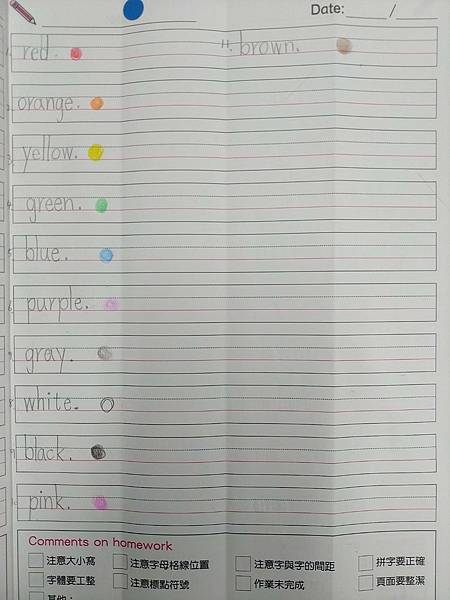 Date: ____ / ____
1. red.
11. brown.
2. orange.
3. yellow.
4. green.
5. blue.
6. purple.
7. gray.
8. white.
9. black.
10. pink.
Comments on homework
注意大小寫 注意字母格線位置 注意字與字的間距 拼字要正確
字體要工整 注意標點符號 作業未完成 頁面要整潔
其他：